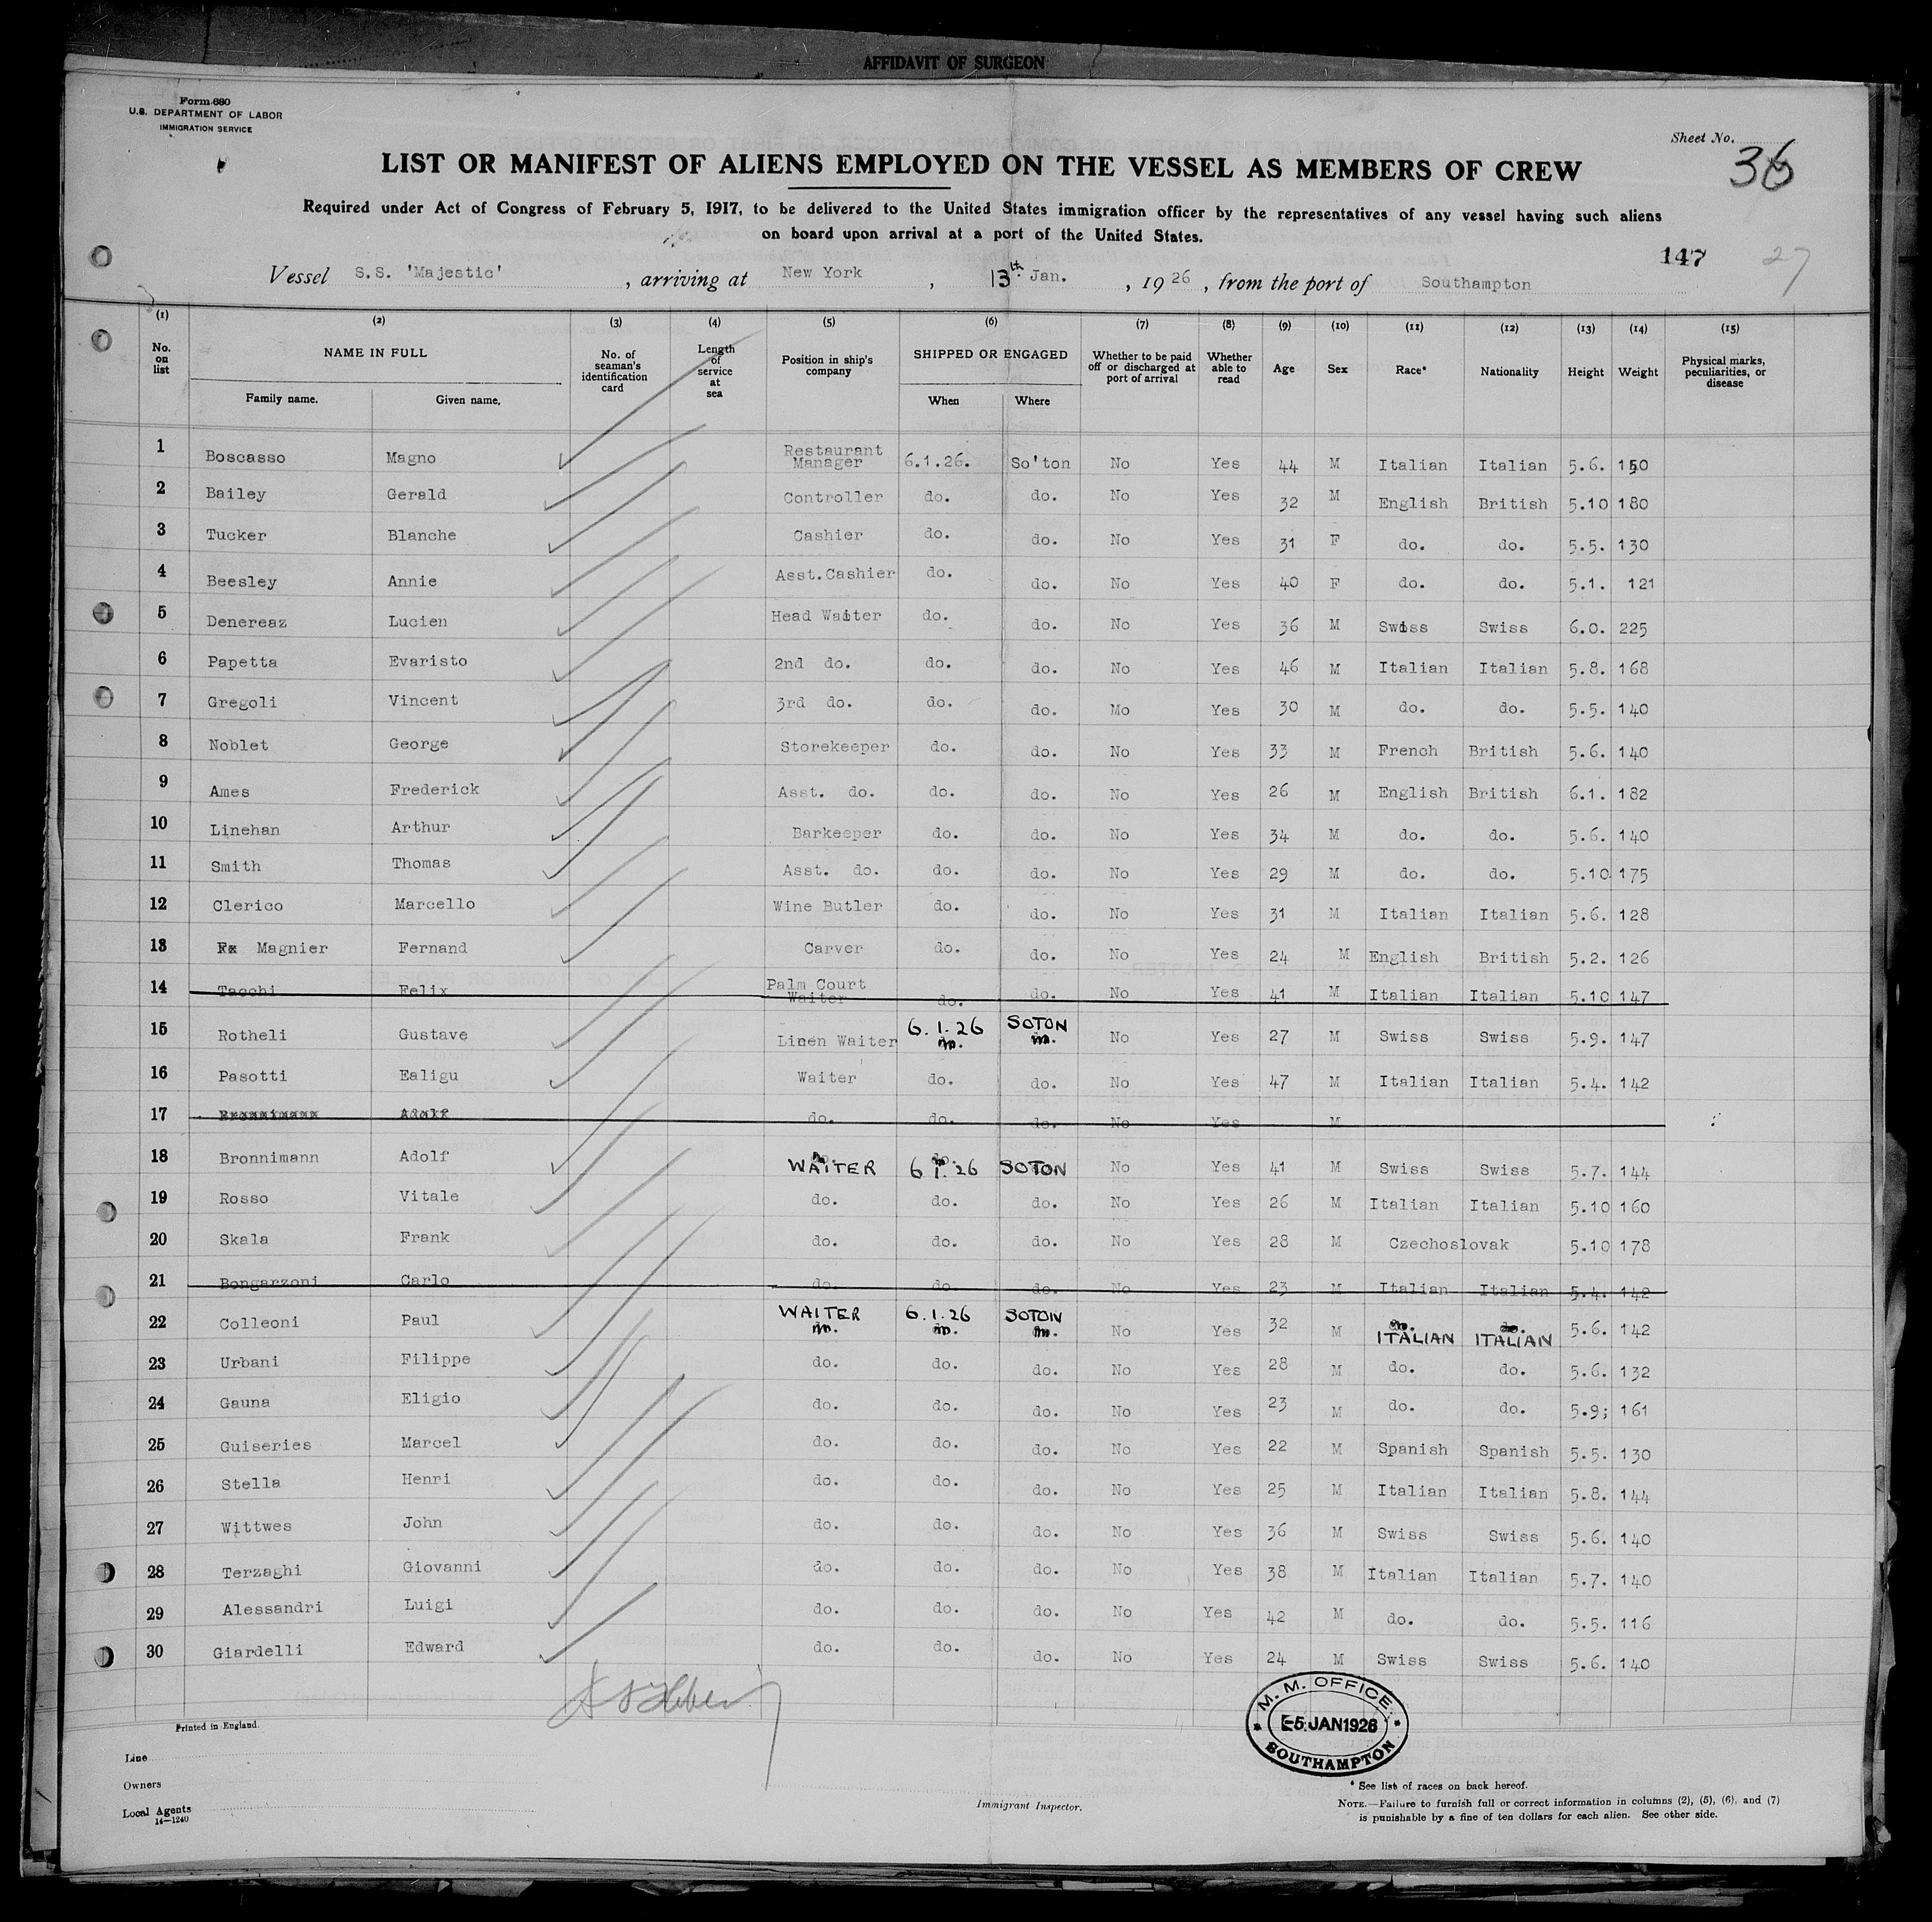 AFFIDAVIT OF SURGEON
Form 680
U.S. DEPARTMENT OF LABOR
IMMIGRATION SERVICE
Sheet No.
36
LIST OR MANIFEST OF ALIENS EMPLOYED ON THE VESSEL AS MEMBERS OF CREW
Required under Act of Congress of February 5, 1917, to be delivered to the United States immigration officer by the representatives of any vessel having such aliens
on board upon arrival at a port of the United States.
147 27
Vessel S.S. 'Majestic' , arriving at New York , 13th Jan. , 1926 , from the port of Southampton
(1) (2) (3) (4) (5) (6) (7) (8) (9) (10) (11) (12) (13) (14) (15)
No. on list NAME IN FULL Family name. Given name. No. of seaman's identification card Length of service at sea Position in ship's company SHIPPED OR ENGAGED When Where Whether to be paid off or discharged at port of arrival Whether able to read Age Sex Race* Nationality Height Weight Physical marks, peculiarities, or disease
1 Boscasso Magno Restaurant Manager 6.1.26. So'ton No Yes 44 M Italian Italian 5.6. 150
2 Bailey Gerald Controller do. do. No Yes 32 M English British 5.10 180
3 Tucker Blanche Cashier do. do. No Yes 31 F do. do. 5.5. 130
4 Beesley Annie Asst.Cashier do. do. No Yes 40 F do. do. 5.1. 121
5 Denereaz Lucien Head Waiter do. do. No Yes 36 M Swiss Swiss 6.0. 225
6 Papetta Evaristo 2nd do. do. do. No Yes 46 M Italian Italian 5.8. 168
7 Gregoli Vincent 3rd do. do. do. Mo Yes 30 M do. do. 5.5. 140
8 Noblet George Storekeeper do. do. No Yes 33 M French British 5.6. 140
9 Ames Frederick Asst. do. do. do. No Yes 26 M English British 6.1. 182
10 Linehan Arthur Barkeeper do. do. No Yes 34 M do. do. 5.6. 140
11 Smith Thomas Asst. do. do. do. No Yes 29 M do. do. 5.10 175
12 Clerico Marcello Wine Butler do. do. No Yes 31 M Italian Italian 5.6. 128
13 Magnier Fernand Carver do. do. No Yes 24 M English British 5.2. 126
14 Tacchi Felix Palm Court Waiter do. do. No Yes 41 M Italian Italian 5.10 147
15 Rotheli Gustave Linen Waiter 6.1.26 SOTON No Yes 27 M Swiss Swiss 5.9. 147
16 Pasotti Ealigu Waiter do. do. No Yes 47 M Italian Italian 5.4. 142
17 Bronnimann Adolf do. do. do. No Yes M
18 Bronnimann Adolf WAITER 6 1. 26 SOTON No Yes 41 M Swiss Swiss 5.7. 144
19 Rosso Vitale do. do. do. No Yes 26 M Italian Italian 5.10 160
20 Skala Frank do. do. do. No Yes 28 M Czechoslovak 5.10 178
21 Bongarzoni Carlo do. do. do. No Yes 23 M Italian Italian 5.4. 142
22 Colleoni Paul WAITER 6.1.26 SOTON No Yes 32 M ITALIAN ITALIAN 5.6. 142
23 Urbani Filippe do. do. do. No Yes 28 M do. do. 5.6. 132
24 Gauna Eligio do. do. do. No Yes 23 M do. do. 5.9; 161
25 Guiseries Marcel do. do. do. No Yes 22 M Spanish Spanish 5.5. 130
26 Stella Henri do. do. do. No Yes 25 M Italian Italian 5.8. 144
27 Wittwes John do. do. do. No Yes 36 M Swiss Swiss 5.6. 140
28 Terzaghi Giovanni do. do. do. No Yes 38 M Italian Italian 5.7. 140
29 Alessandri Luigi do. do. do. No Yes 42 M do. do. 5.5. 116
30 Giardelli Edward do. do. do. No Yes 24 M Swiss Swiss 5.6. 140
M. M. OFFICE
-5 JAN 1926
SOUTHAMPTON
Printed in England.
Line
Owners
Local Agents
14—1240
Immigrant Inspector.
* See list of races on back hereof.
NOTE.—Failure to furnish full or correct information in columns (2), (5), (6), and (7)
is punishable by a fine of ten dollars for each alien. See other side.